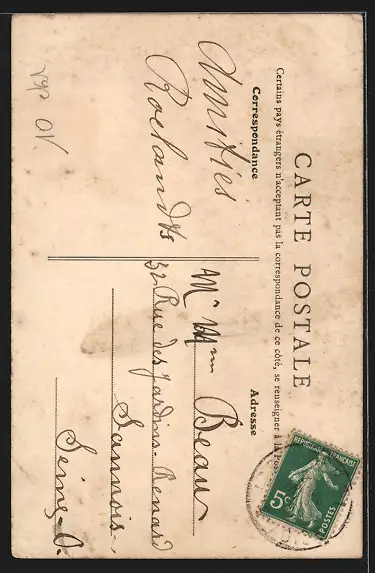 CARTE POSTALE
Certains pays étrangers n'acceptant pas la correspondance de ce côté, se renseigner à la Poste
Correspondance
Amitiés
Adresse
Mr Mme Beau
32 Rue des Jardins-Renard
Sannois
Seine-O.
RÉPUBLIQUE FRANÇAISE
5c
POSTES